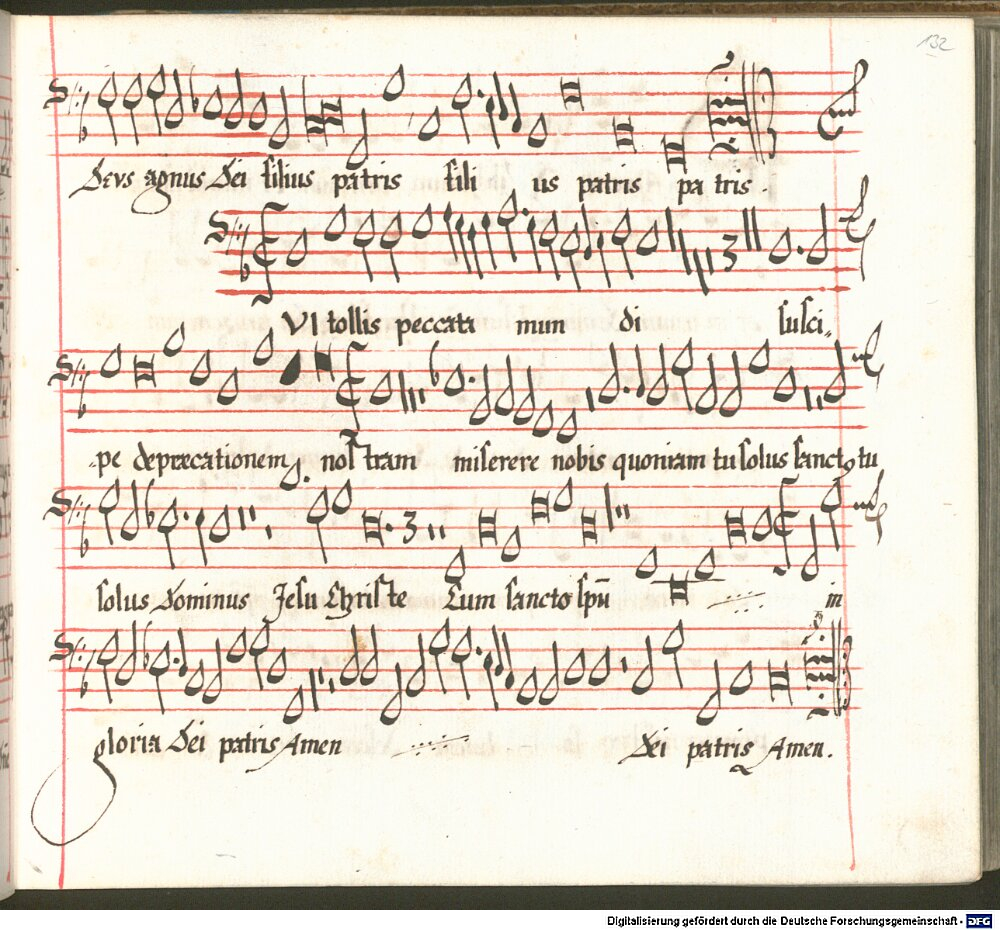 132
Deus agnus Dei filius patris fili us patris pa tris.
3
VI tollis peccata mun di susci..
..pe depræcationem nostram miserere nobis quoniam tu solus sanctꝯ tu
3
solus Dominus Jesu Christe Cum sancto spū in
gloria Dei patris Amen Dei patris Amen.
Digitalisierung gefördert durch die Deutsche Forschungsgemeinschaft - DFG